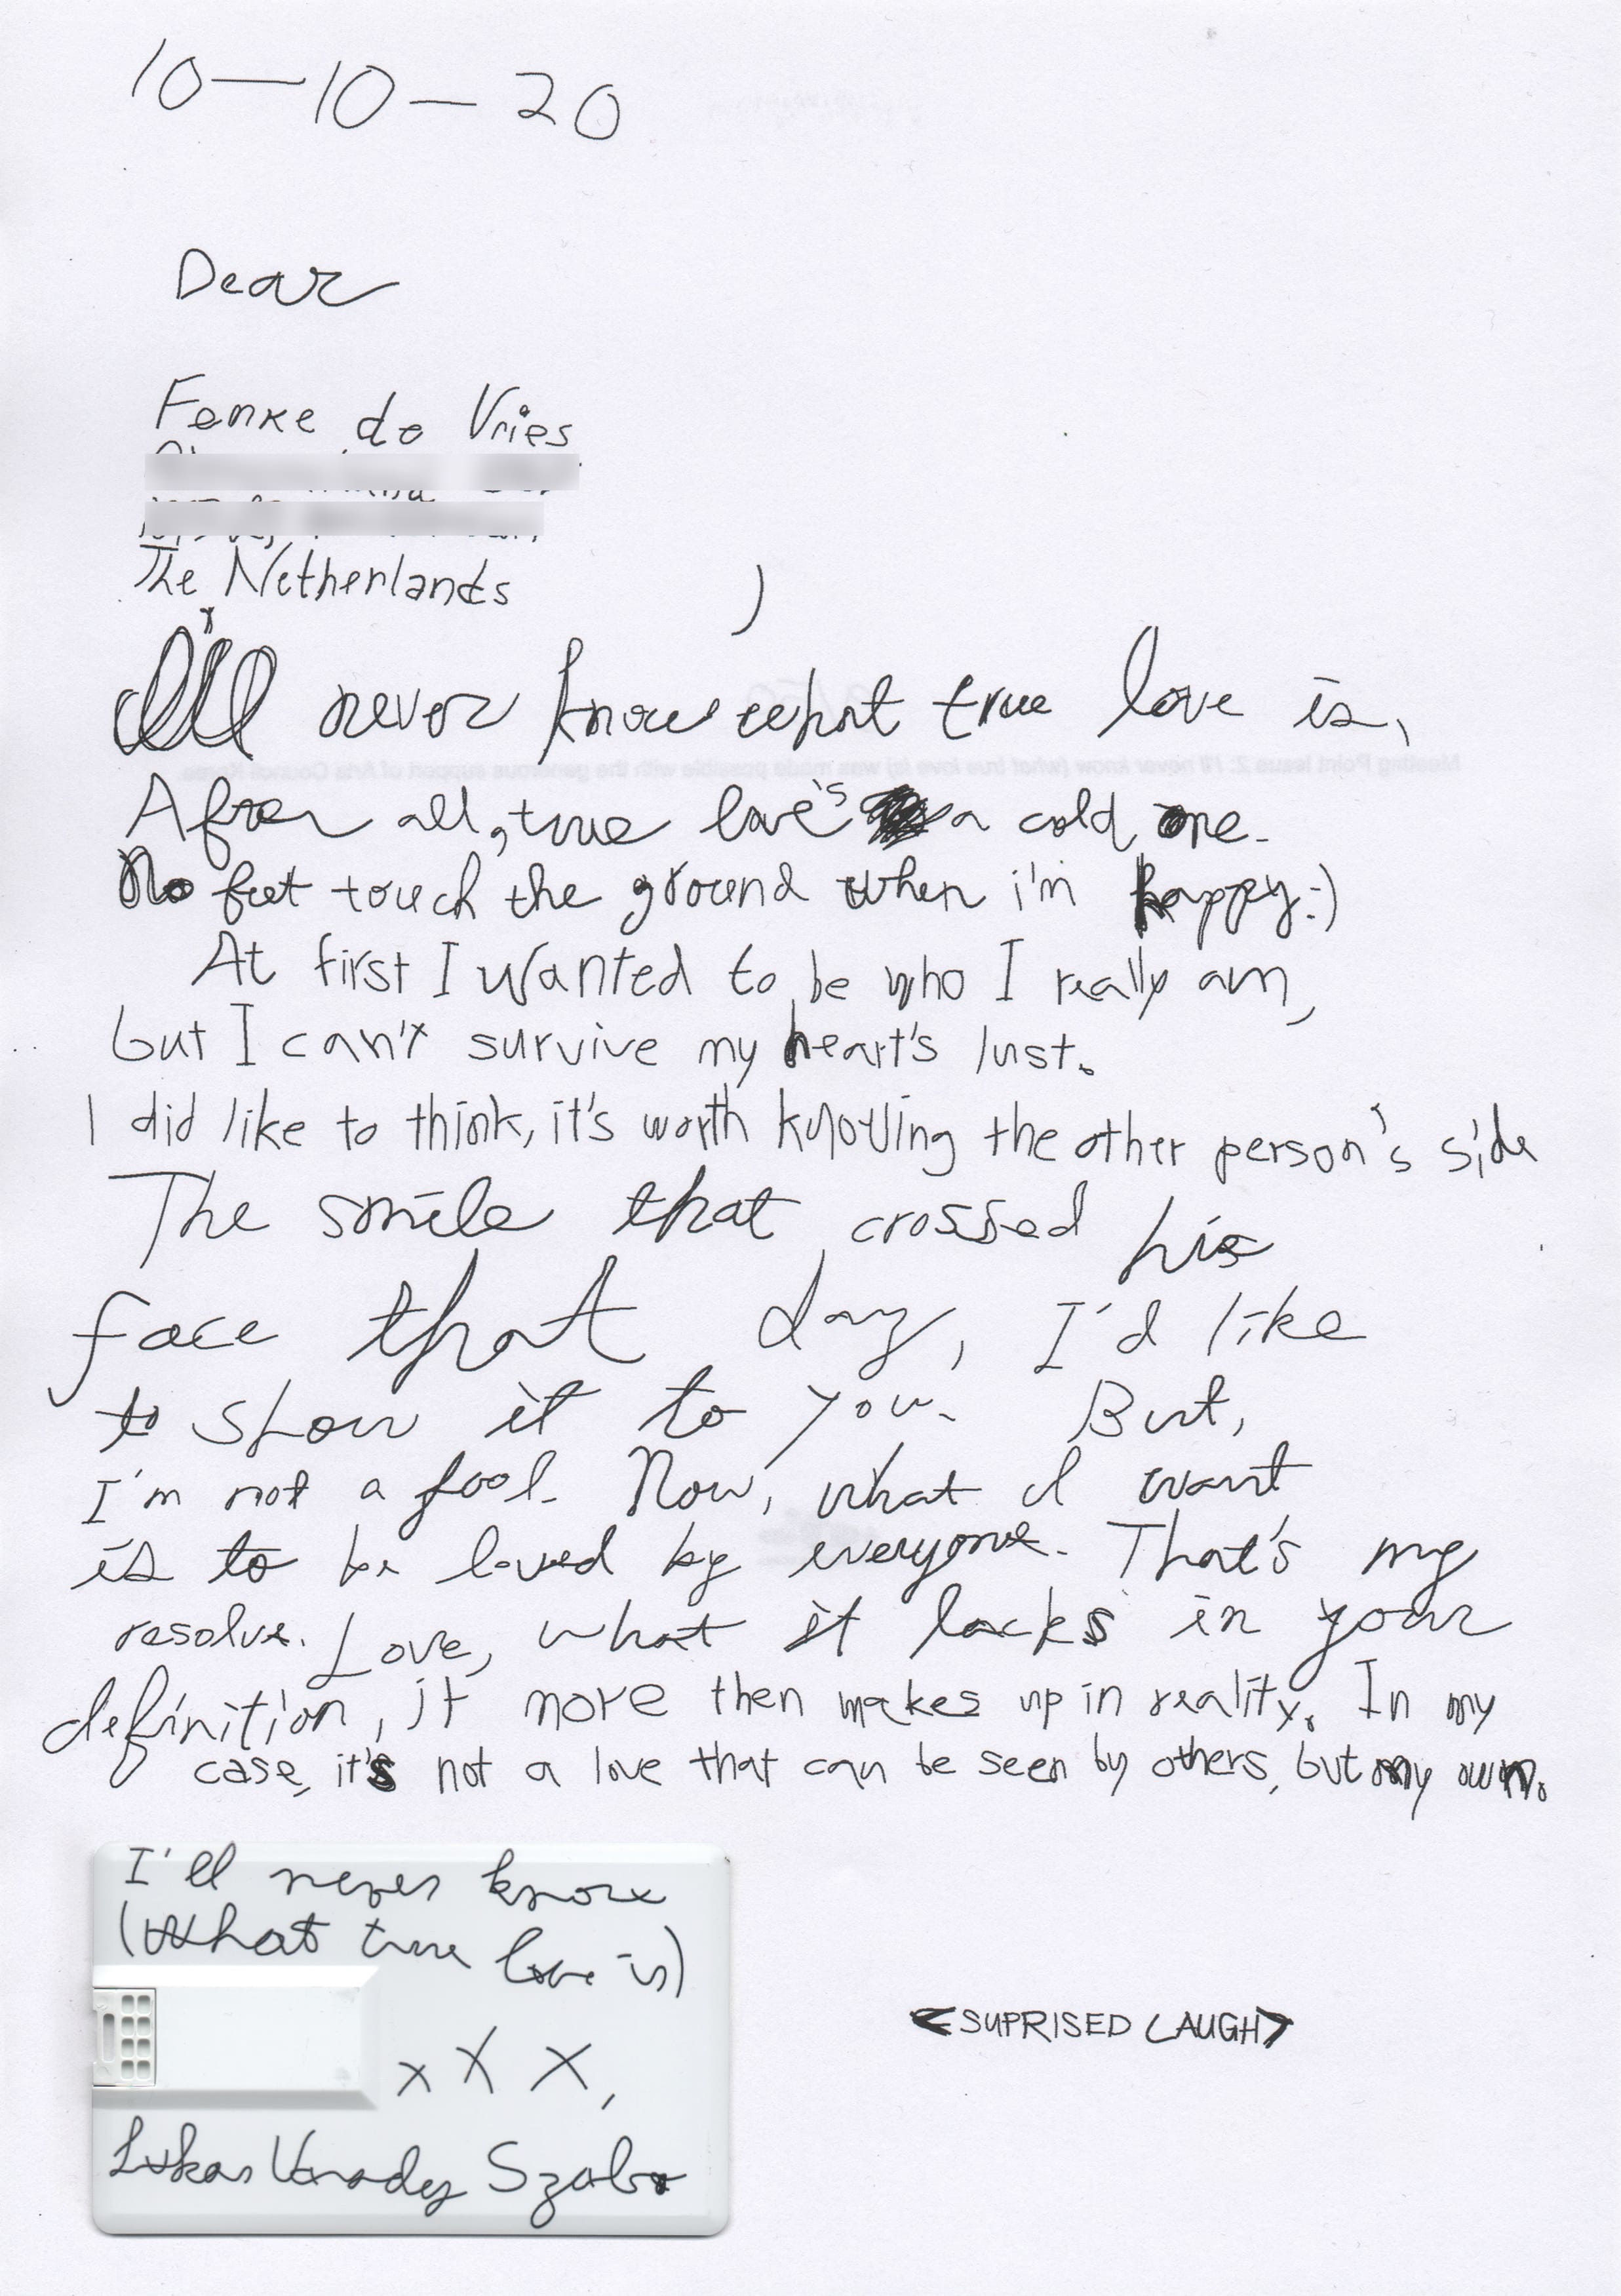 10-10-20
Dear
Femke de Vries
The Netherlands
I'll never know what true love is,
After all, true love's a cold one.
No feet touch the ground when i'm happy:)
At first I wanted to be who I really am,
but I can't survive my heart's lust.
I did like to think, it's worth knowing the other person's side
The smile that crossed his
face that day, I'd like
to show it to you. But,
I'm not a fool. Now, what I want
is to be loved by everyone. That's my
resolve. Love, what it lacks in your
definition, it more then makes up in reality. In my
case, it's not a love that can be seen by others, but my own.
I'll never know
(What true love is)
x x x,
Lukas Varady Szabo
<SUPRISED LAUGH>